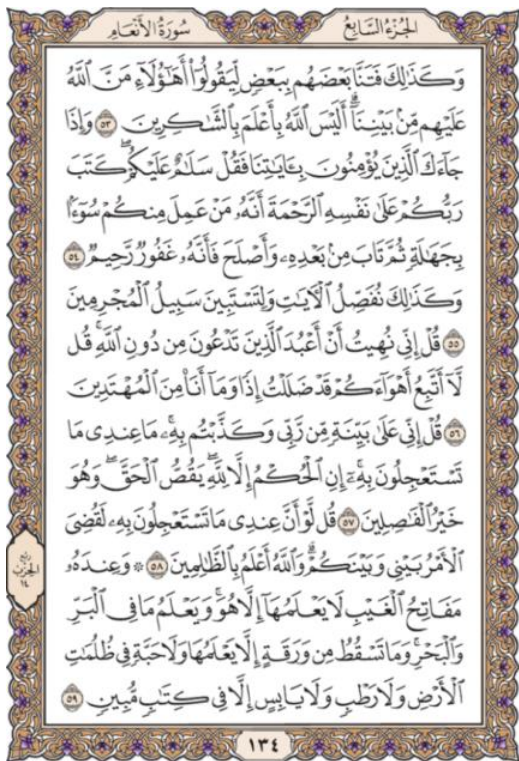 الجُزْءُ السَّابِعُ
سُورَةُ الأَنْعَامِ
وَكَذَٰلِكَ فَتَنَّا بَعْضَهُم بِبَعْضٍ لِّيَقُولُوٓا۟ أَهَٰٓؤُلَآءِ مَنَّ ٱللَّهُ
عَلَيْهِم مِّنۢ بَيْنِنَآ ۗ أَلَيْسَ ٱللَّهُ بِأَعْلَمَ بِٱلشَّٰكِرِينَ ٥٣ وَإِذَا
جَآءَكَ ٱلَّذِينَ يُؤْمِنُونَ بِـَٔايَٰتِنَا فَقُلْ سَلَٰمٌ عَلَيْكُمْ ۖ كَتَبَ
رَبُّكُمْ عَلَىٰ نَفْسِهِ ٱلرَّحْمَةَ ۖ أَنَّهُۥ مَنْ عَمِلَ مِنكُمْ سُوٓءًۢا
بِجَهَٰلَةٍ ثُمَّ تَابَ مِنۢ بَعْدِهِۦ وَأَصْلَحَ فَأَنَّهُۥ غَفُورٌ رَّحِيمٌ ٥٤
وَكَذَٰلِكَ نُفَصِّلُ ٱلْـَٔايَٰتِ وَلِتَسْتَبِينَ سَبِيلُ ٱلْمُجْرِمِينَ
٥٥ قُلْ إِنِّى نُهِيتُ أَنْ أَعْبُدَ ٱلَّذِينَ تَدْعُونَ مِن دُونِ ٱللَّهِ ۚ قُل
لَّآ أَتَّبِعُ أَهْوَآءَكُمْ ۙ قَدْ ضَلَلْتُ إِذًا وَمَآ أَنَا۠ مِنَ ٱلْمُهْتَدِينَ
٥٦ قُلْ إِنِّى عَلَىٰ بَيِّنَةٍ مِّن رَّبِّى وَكَذَّبْتُم بِهِۦ ۚ مَا عِندِى مَا
تَسْتَعْجِلُونَ بِهِۦٓ ۚ إِنِ ٱلْحُكْمُ إِلَّا لِلَّهِ ۖ يَقُصُّ ٱلْحَقَّ ۖ وَهُوَ
خَيْرُ ٱلْفَٰصِلِينَ ٥٧ قُل لَّوْ أَنَّ عِندِى مَا تَسْتَعْجِلُونَ بِهِۦ لَقُضِىَ
ٱلْأَمْرُ بَيْنِى وَبَيْنَكُمْ ۗ وَٱللَّهُ أَعْلَمُ بِٱلظَّٰلِمِينَ ٥٨ ۞ وَعِندَهُۥ
مَفَاتِحُ ٱلْغَيْبِ لَا يَعْلَمُهَآ إِلَّا هُوَ ۚ وَيَعْلَمُ مَا فِى ٱلْبَرِّ
وَٱلْبَحْرِ ۚ وَمَا تَسْقُطُ مِن وَرَقَةٍ إِلَّا يَعْلَمُهَا وَلَا حَبَّةٍ فِى ظُلُمَٰتِ
ٱلْأَرْضِ وَلَا رَطْبٍ وَلَا يَابِسٍ إِلَّا فِى كِتَٰبٍ مُّبِينٍ ٥٩
ربع
الحزب
١٤
١٣٤